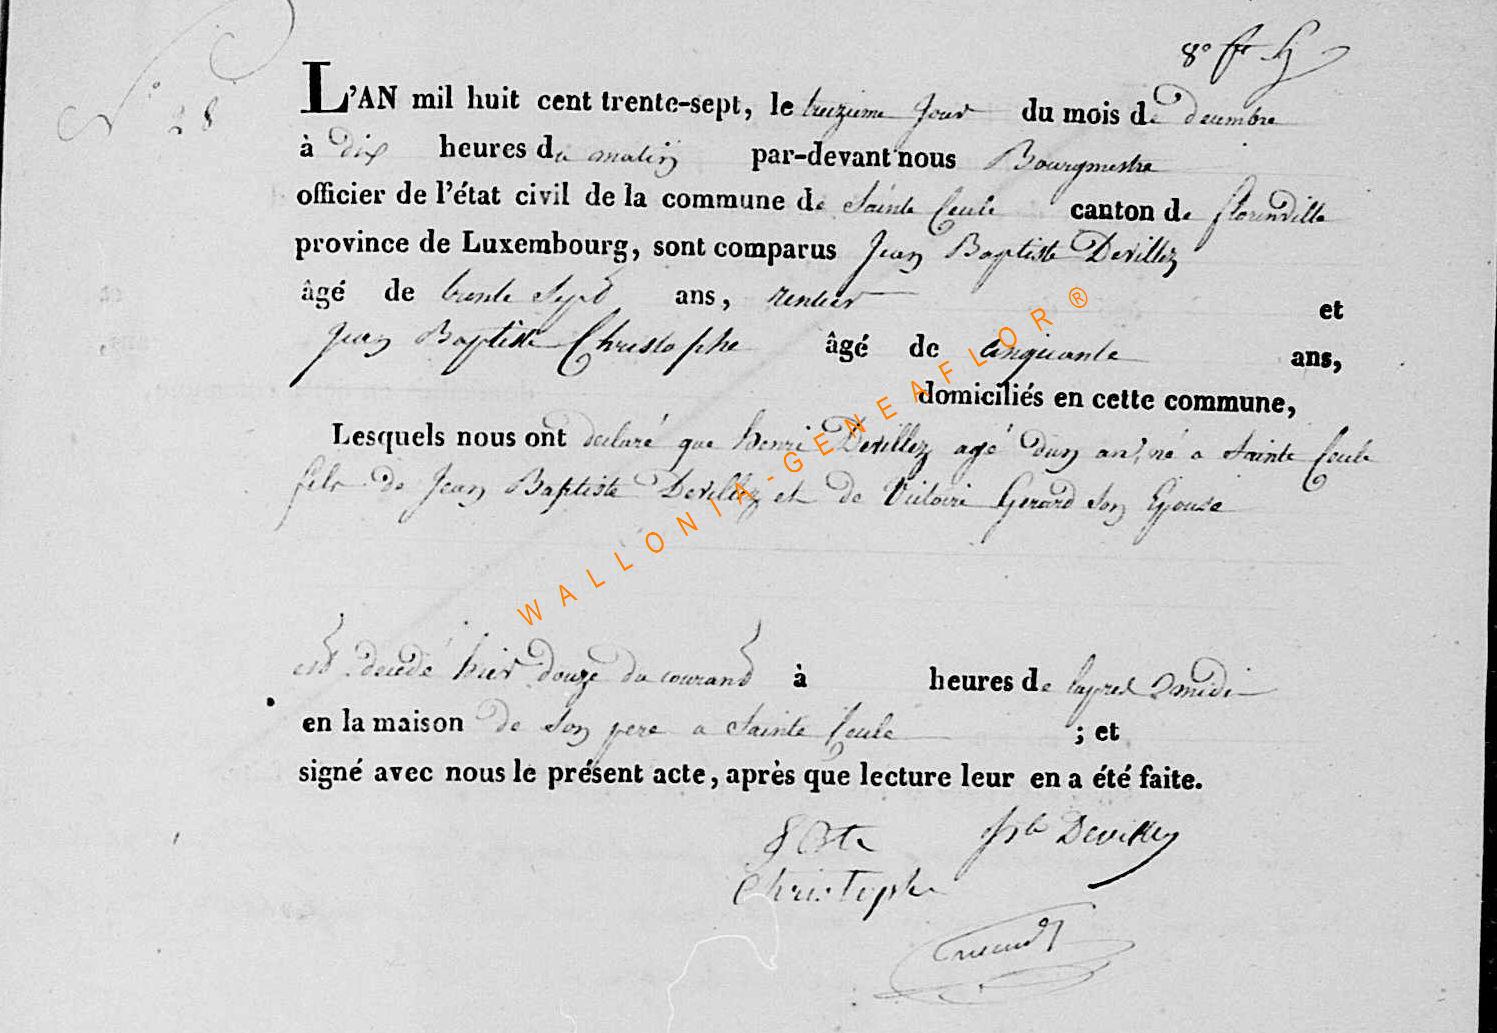 8e
No 28
L'AN mil huit cent trente-sept, le treizieme jour du mois de decembre
à dix heures du matin par-devant nous Bourgmestre
officier de l'état civil de la commune de Sainte Cecile canton de florenville
province de Luxembourg, sont comparus Jean Baptiste Devillez
âgé de trente sept ans, rentier et
Jean Baptiste Christophe âgé de cinquante ans,
domiciliés en cette commune,
Lesquels nous ont declaré que henri Devillez agé dun an, né a Sainte Cecile
fils de Jean Baptiste Devillez et de Victoire Gerard son Epouse
est decedé hier douze du courand à heures de lapres midi
en la maison de son pere a Sainte Cecile ; et
signé avec nous le présent acte, après que lecture leur en a été faite.
J Bte Jh bte Devillez
Christophe
WALLONIA-GENEAFLOR®